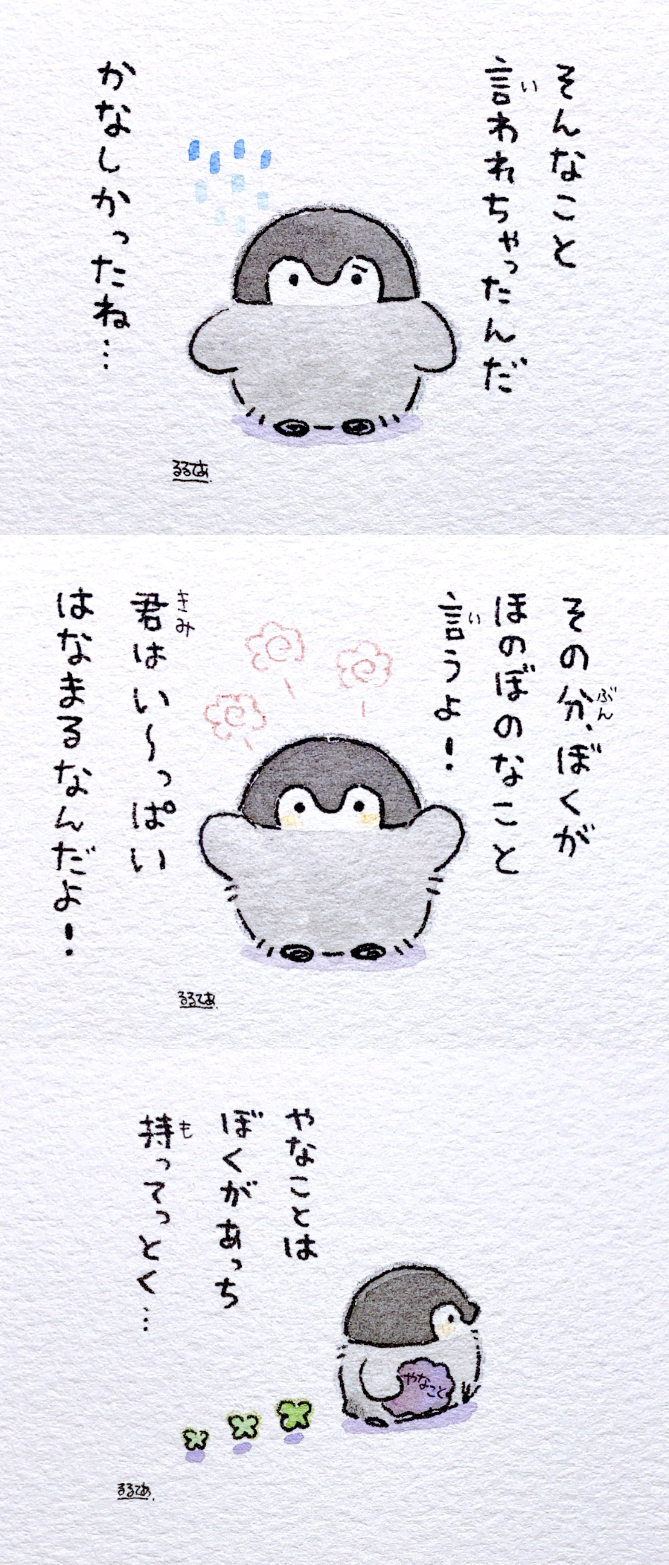 そんなこと
言われちゃったんだ
い
かなしかったね…
るるてあ
その分、ぼくが
ぶん
ほのぼのなこと
言うよ!
い
君はい〜っぱい
きみ
はなまるなんだよ!
るるてあ
やなことは
ぼくがあっち
持ってっとく…
も
やなこと
るるてあ